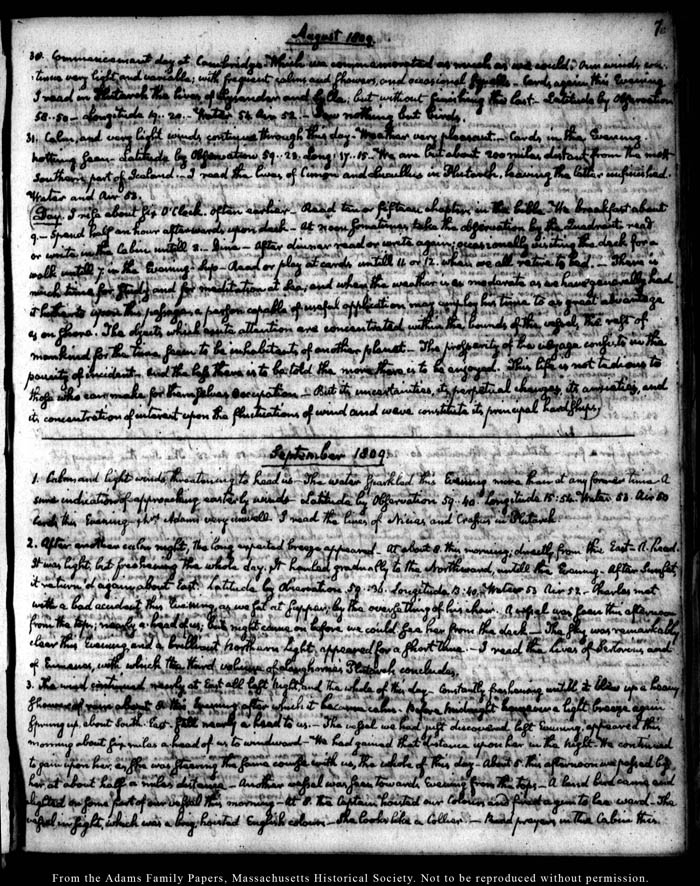 7.
August 1809.
30. Commencement day at Cambridge. Which we commemorated as much as we could. Our winds con-
tinue very light and variable; with frequent calms and showers, and occasional squalls. Cards again this Evening
I read in Plutarch the lives of Lysander and Sylla, but without finishing the last. Latitude by Observation
58..50. Longitude 19.. 20. Water 54. Air 52. Saw nothing but birds.
31. Calm, and very light winds continue through this day. Weather very pleasant. Cards in the Evening
nothing seen. Latitude by Observation 59..23. Long: 17..15. We are but about 200 miles distant from the most
Southern part of Iceland. I read the lives of Cimon and Lucullus in Plutarch, leaving the latter unfinished.
Water and Air 53.
Day. I rise about six O'Clock, often earlier. Read ten or fifteen chapters in the bible. We breakfast about
9. Spend half an hour afterwards upon deck. At noon sometimes take the observation by the Quadrant, read
or write in the Cabin untill 2. Dine. After dinner read or write again; occasionally visiting the deck for a
walk untill 7. in the Evening. Sup. Read or play at cards untill 11 or 12. when we all retire to bed. There is
much time for study and for meditation at Sea; and when the weather is as moderate as we have generally had
it hitherto upon this passage, a person capable of useful application may employ his time to as great advantage
as on shore. The objects which excite attention are concentrated within the bounds of the vessel, the rest of
mankind for the time seem to be inhabitants of another planet. The prosperity of the voyage consists in the
paucity of incident, and the less there is to be told the more there is to be enjoyed. This life is not tedious to
those who can make for themselves occupation. But its uncertainties, its perpetual changes, its anxieties, and
its concentration of interest upon the fluctuations of wind and wave constitute its principal hardships.
September 1809.
1. Calm and light winds threatening to head us. The water sparkled this Evening more than at any former time. A
sure indication of approaching easterly winds. Latitude by Observation 59..40. Longitude 15:54. Water. 53. Air 50
Cards this Evening. Mrs Adams very unwell. I read the lives of Nicias and Crassus in Plutarch.
2. After another calm night, the long expected breeze appeared. At about 8. this morning; directly from the East. A head.
It was light, but freshening the whole day. It hauled gradually to the Northward, untill the Evening. After Sunset,
it return'd again, about East. Latitude by Observation. 59..36. Longitude 13:40. Water 53 Air 52. Charles met
with a bad accident this Evening, as we sat at supper, by the oversetting of his chair. A vessel was seen this afternoon
from the top; nearly a-head of us; but night came on before we could see her from the deck. The sky was remarkably
clear this Evening and a brilliant Northern light, appeared for a short time. I read the lives of Sertorius and
of Eumenes, with which the third volume of Langhornes Plutarch concludes.
3. The wind continued nearly at East all last Night, and the whole of this day. Constantly freshening untill it blew up a heavy
shower of rain about 8. this Evening; after which it became calm. Before midnight however a light breeze again
sprung up, about South-East. Still nearly a head to us. The vessel we had just discovered last Evening, appeared this
morning about six miles a head of us to windward. We had gained that distance upon her in the Night. We continued
to gain upon her, as she was steering the same course with us, the whole of this day. About 5. this afternoon we passed by
her at about half a mile's distance. Another vessel was seen towards Evening from the top. A land bird came and
alighted on some part of our vessel this morning. At 8. the Captain hoisted our Colours and fired a gun to leeward. The
vessel in sight, which was a brig, hoisted English colours. She looks like a Collier. Read prayers in the Cabin this
From the Adams Family Papers, Massachusetts Historical Society. Not to be reproduced without permission.